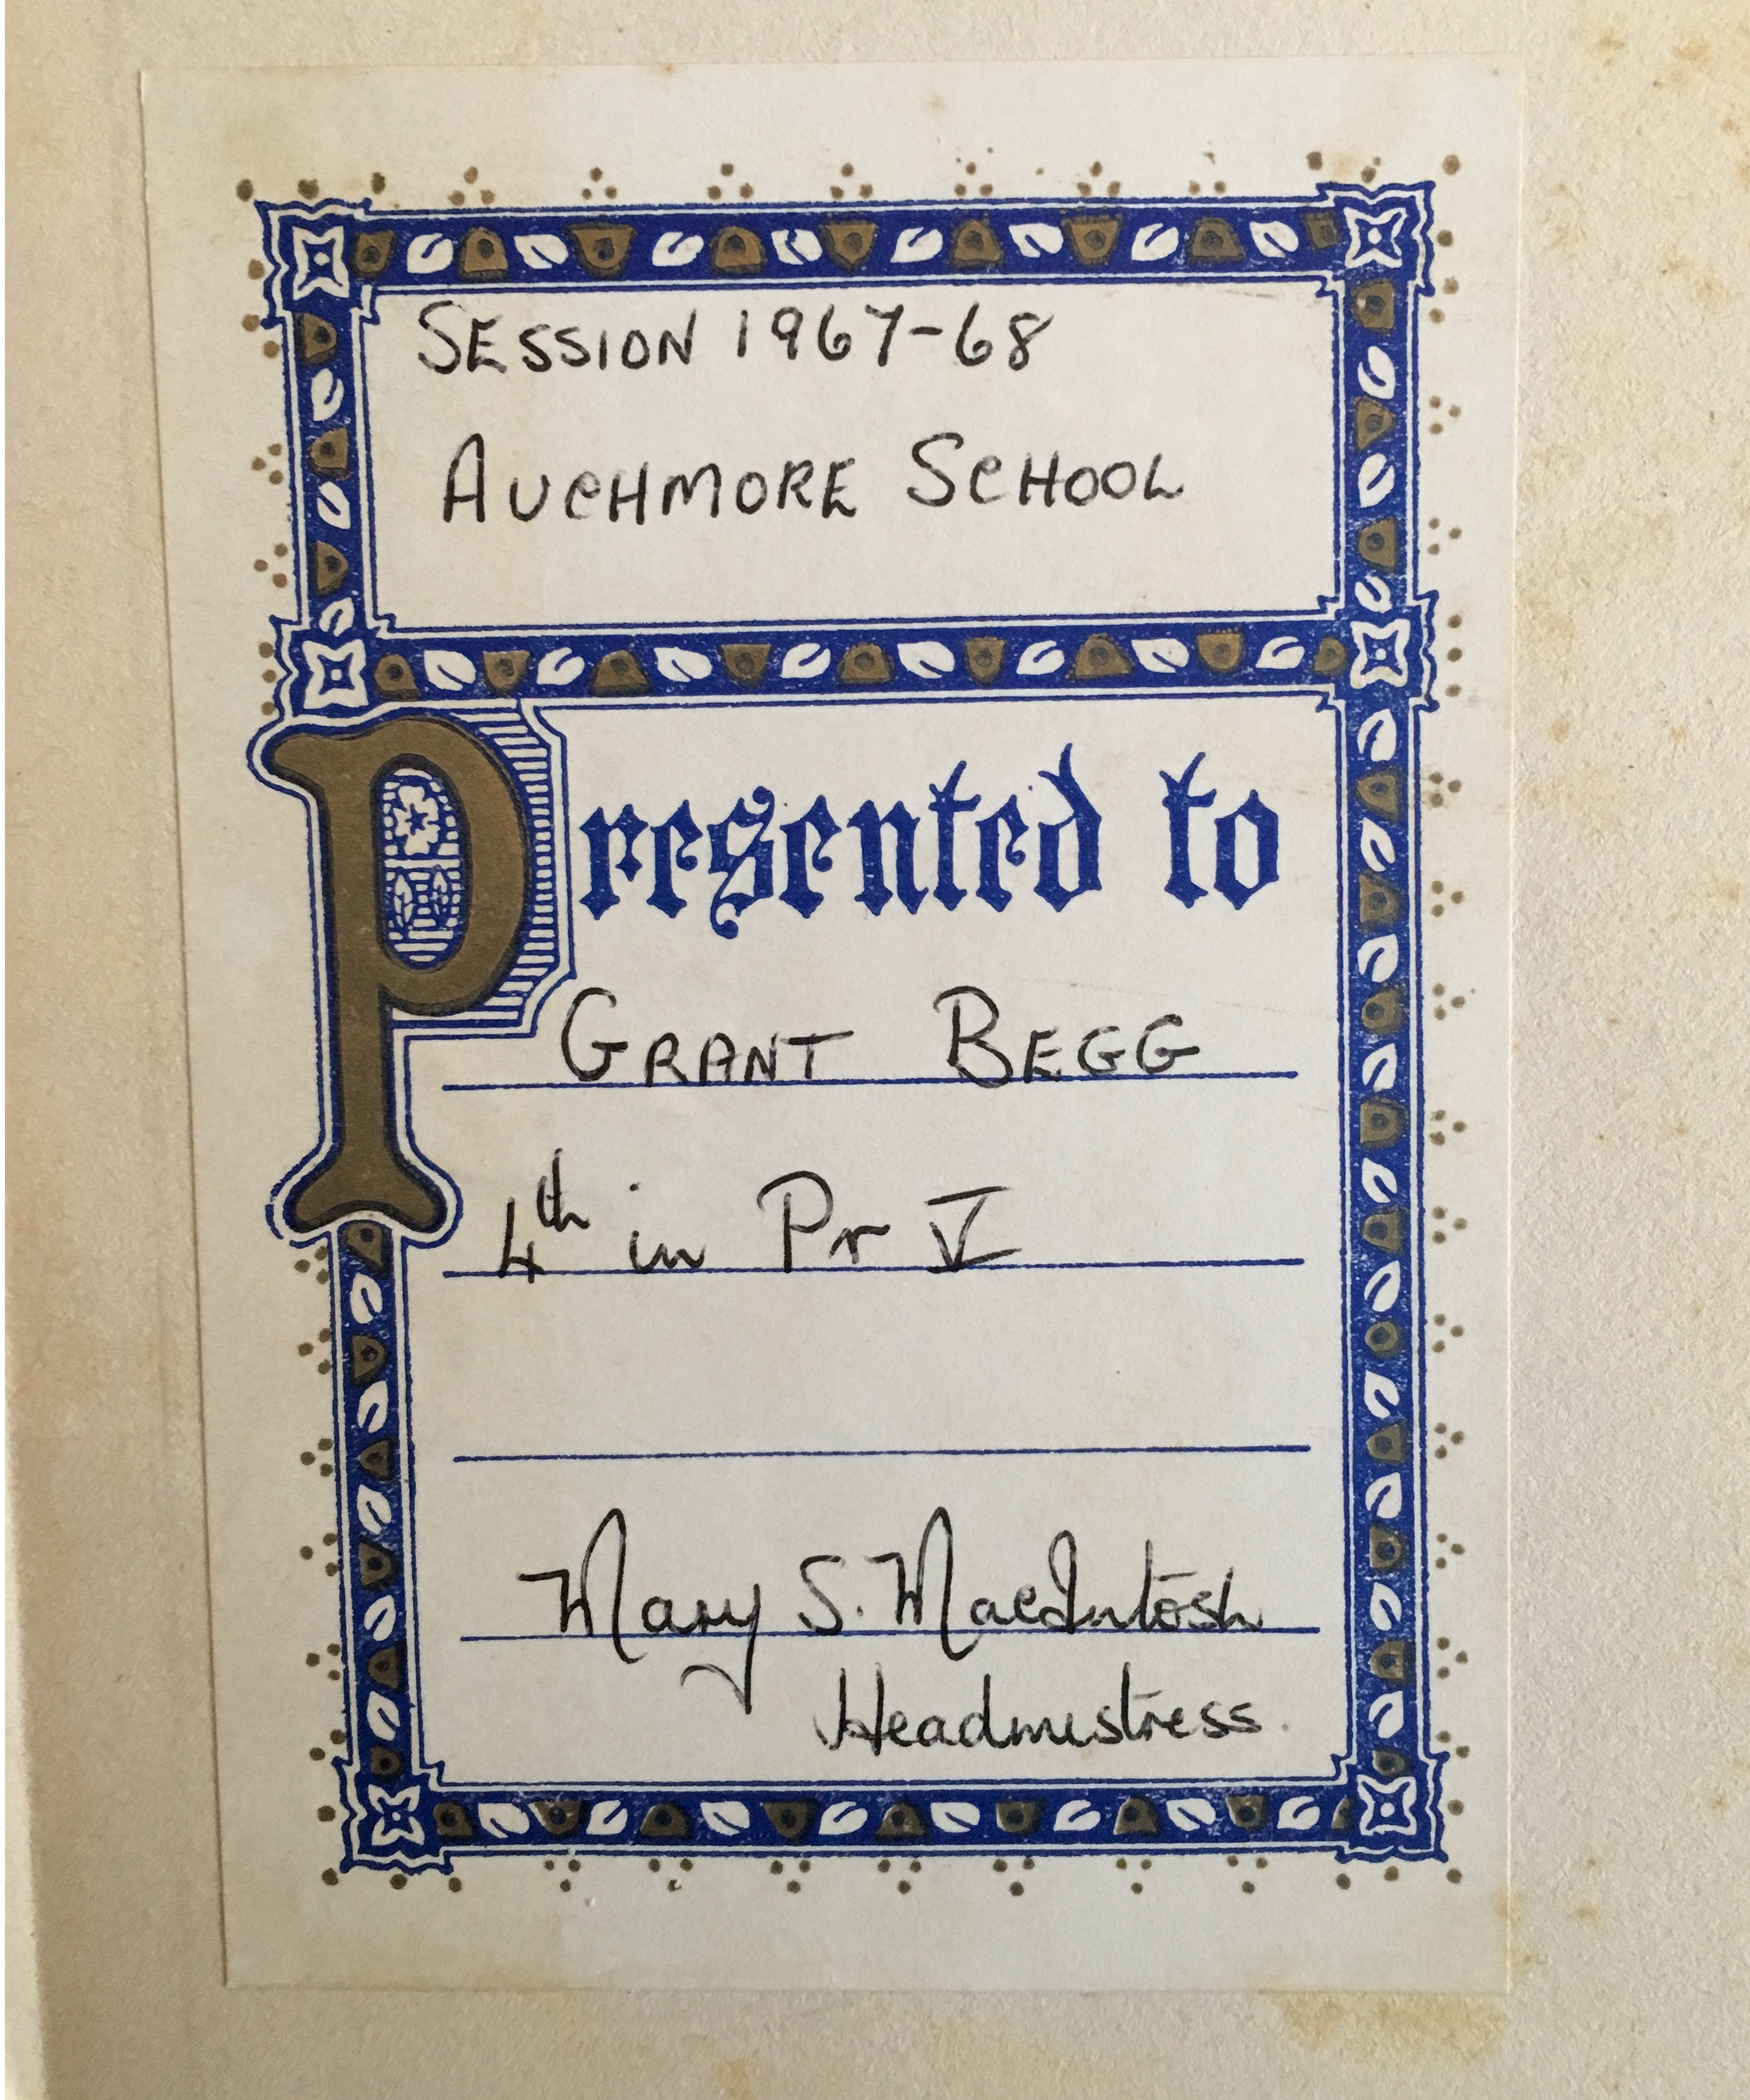 SESSION 1967-68
AUCHMORE SCHOOL
Presented to
GRANT BEGG
4th in Pr V
Mary S. MacIntosh
Headmistress.